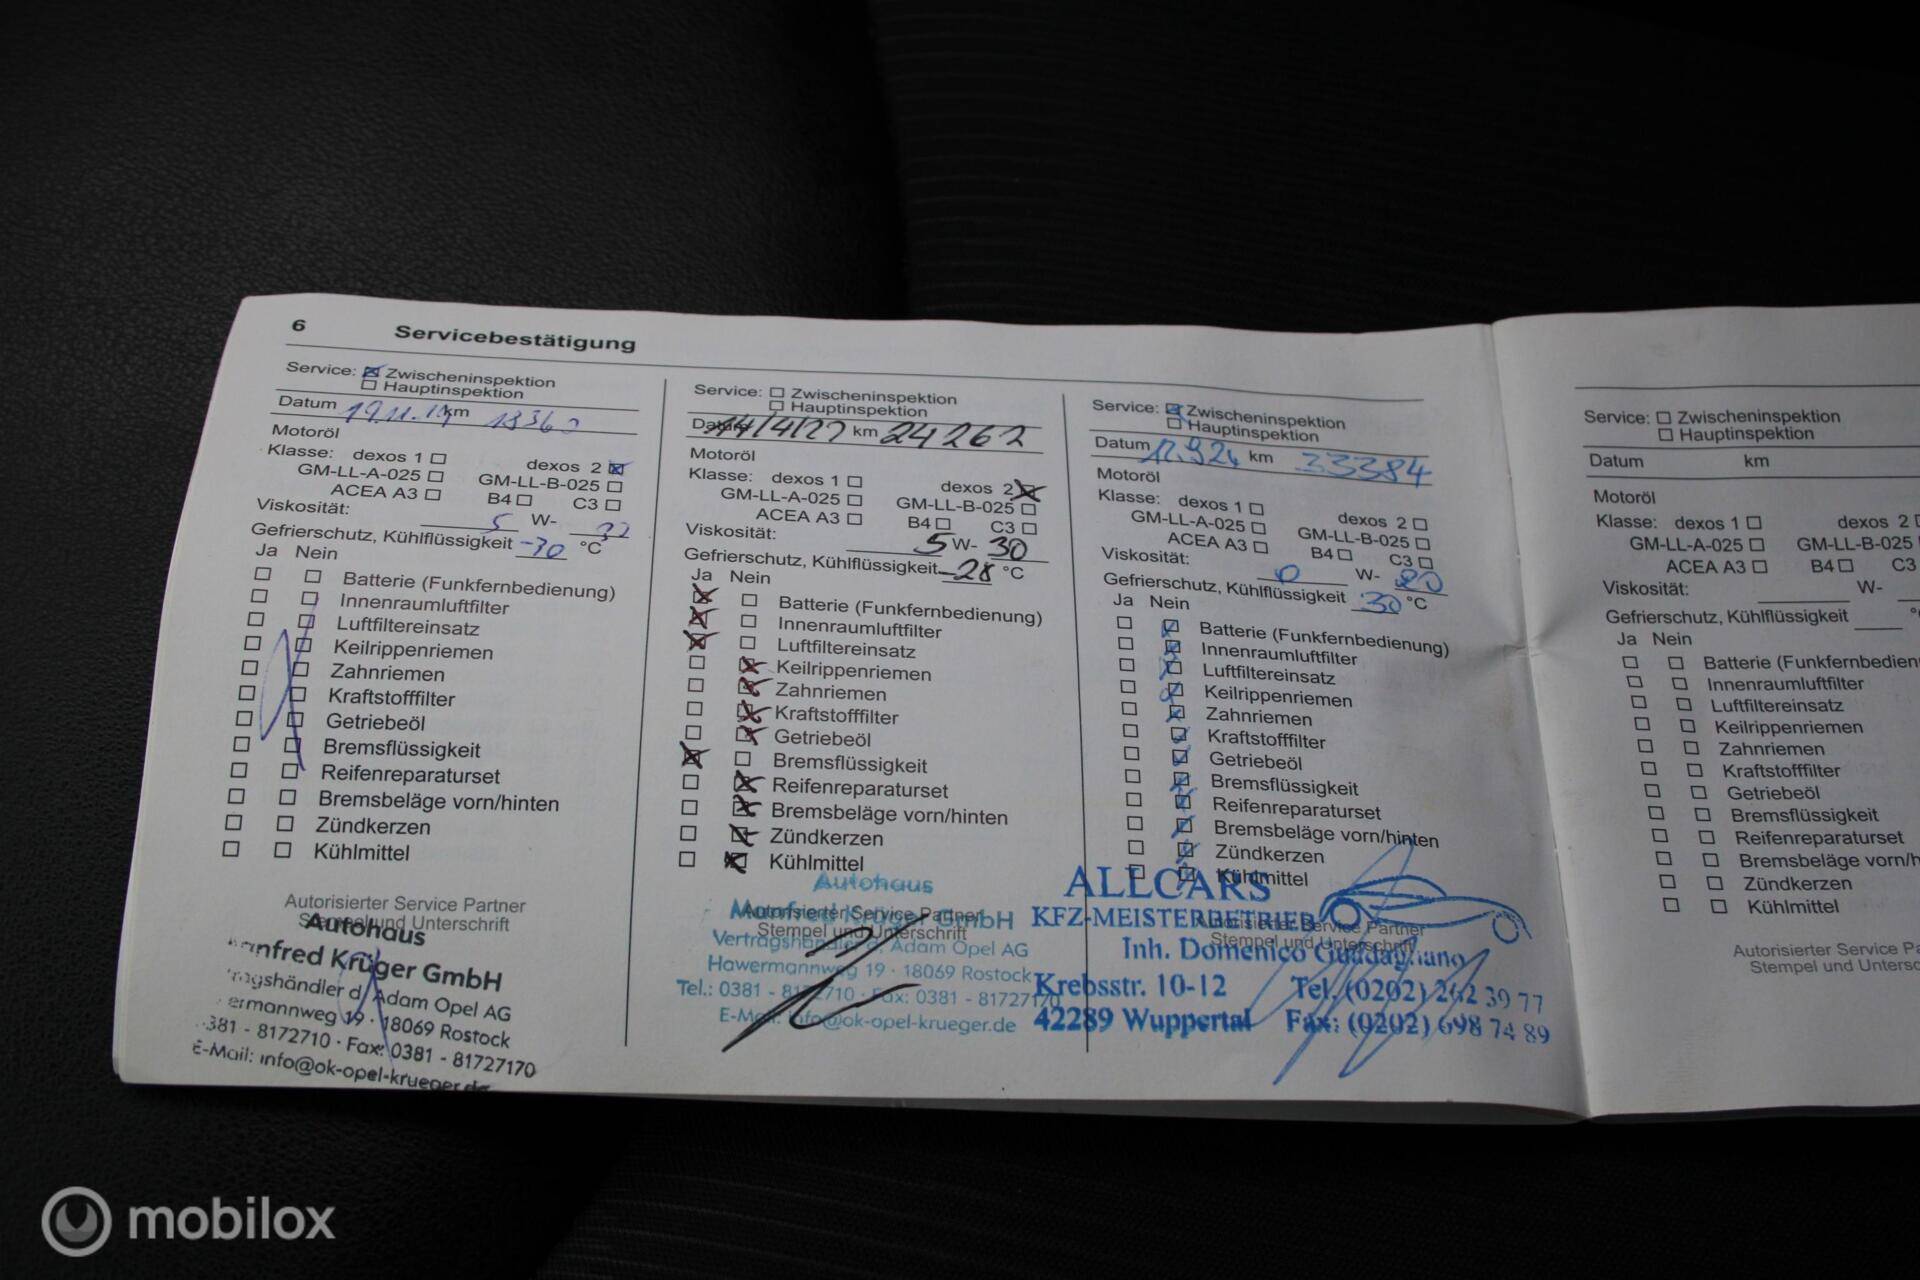 6 Servicebestätigung
Service: Zwischeninspektion
Hauptinspektion
Datum 19.11.19 km
Motoröl
Klasse: dexos 1 dexos 2
GM-LL-A-025 GM-LL-B-025
ACEA A3 B4 C3
Viskosität: 5 W-
Gefrierschutz, Kühlflüssigkeit -30 °C
Ja Nein
Batterie (Funkfernbedienung)
Innenraumluftfilter
Luftfiltereinsatz
Keilrippenriemen
Zahnriemen
Kraftstofffilter
Getriebeöl
Bremsflüssigkeit
Reifenreparaturset
Bremsbeläge vorn/hinten
Zündkerzen
Kühlmittel
Autorisierter Service Partner
Stempel und Unterschrift
Autohaus
nfred Krüger GmbH
gshändler d. Adam Opel AG
ermannweg 19 · 18069 Rostock
381 - 8172710 · Fax: 0381 - 81727170
E-Mail: info@ok-opel-krueger.de
Service: Zwischeninspektion
Hauptinspektion
Datum 14/4/22 km 24262
Motoröl
Klasse: dexos 1 dexos 2
GM-LL-A-025 GM-LL-B-025
ACEA A3 B4 C3
Viskosität: 5 W- 30
Gefrierschutz, Kühlflüssigkeit -28 °C
Ja Nein
Batterie (Funkfernbedienung)
Innenraumluftfilter
Luftfiltereinsatz
Keilrippenriemen
Zahnriemen
Kraftstofffilter
Getriebeöl
Bremsflüssigkeit
Reifenreparaturset
Bremsbeläge vorn/hinten
Zündkerzen
Kühlmittel
Autorisierter Service Partner
Stempel und Unterschrift
Autohaus
Manfred Krüger GmbH
Vertragshändler d. Adam Opel AG
Hawermannweg 19 · 18069 Rostock
Tel.: 0381 - 8172710 · Fax: 0381 - 81727170
E-Mail: info@ok-opel-krueger.de
Service: Zwischeninspektion
Hauptinspektion
Datum 12.9.24 km 33384
Motoröl
Klasse: dexos 1 dexos 2
GM-LL-A-025 GM-LL-B-025
ACEA A3 B4 C3
Viskosität: 0 W-
Gefrierschutz, Kühlflüssigkeit -30 °C
Ja Nein
Batterie (Funkfernbedienung)
Innenraumluftfilter
Luftfiltereinsatz
Keilrippenriemen
Zahnriemen
Kraftstofffilter
Getriebeöl
Bremsflüssigkeit
Reifenreparaturset
Bremsbeläge vorn/hinten
Zündkerzen
Kühlmittel
Autorisierter Service Partner
Stempel und Unterschrift
ALLCARS
KFZ-MEISTERBETRIEB
Inh. Domenico Guadagnano
Krebsstr. 10-12 Tel. (0202) 262 39 77
42289 Wuppertal Fax: (0202) 698 74 89
Service: Zwischeninspektion
Hauptinspektion
Datum km
Motoröl
Klasse: dexos 1 dexos 2
GM-LL-A-025 GM-LL-B-025
ACEA A3 B4 C3
Viskosität: W-
Gefrierschutz, Kühlflüssigkeit °
Ja Nein
Batterie (Funkfernbedien
Innenraumluftfilter
Luftfiltereinsatz
Keilrippenriemen
Zahnriemen
Kraftstofffilter
Getriebeöl
Bremsflüssigkeit
Reifenreparaturset
Bremsbeläge vorn/h
Zündkerzen
Kühlmittel
Autorisierter Service Pa
Stempel und Untersc
mobilox